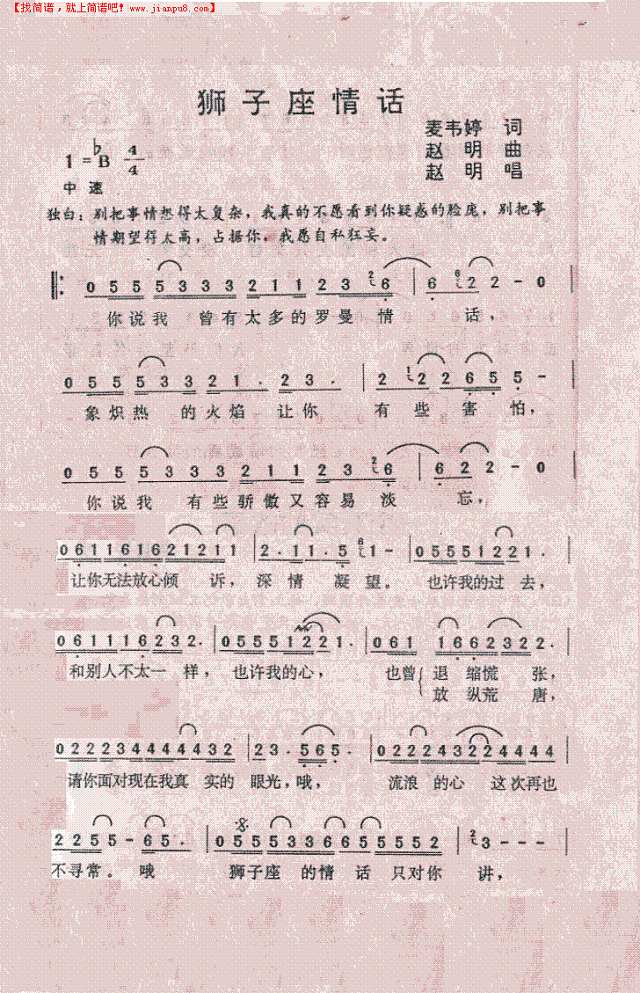 【找简谱，就上简谱吧! www.jianpu8.com】
狮子座情话
麦韦婷 词
1=♭B 4/4
赵明 曲
赵明 唱
中速
独白：别把事情想得太复杂，我真的不愿看到你疑惑的脸庞，别把事
情期望得太高，占据你，我愿自私狂妄。
0 5 5 5 3 3 3 2 1 1 2 3 2 6 | 6 6 2 2 - 0
你说我 曾有太多的罗曼情 话，
0 5 5 5 3 3 3 2 1 . 2 3 . | 2 1 2 2 6 5 5 -
象炽热 的火焰让你 有些害怕，
0 5 5 5 3 3 3 2 1 1 2 3 2 6 | 6 2 2 - 0
你说我 有些骄傲又容易淡 忘，
0 6 1 1 1 6 1 6 2 1 2 1 1 | 2 . 1 1 . 5 6 1 - | 0 5 5 5 1 2 2 1 .
让你无法放心倾 诉，深情 凝望。 也许我的过去，
0 6 1 1 1 1 6 2 3 2 . | 0 5 5 5 1 2 2 1 . | 0 6 1 1 6 6 2 3 2 2 .
和别人不太一 样，也许我的心， 也曾{退缩慌 张，
放纵荒 唐，
0 2 2 2 2 3 4 4 4 4 4 3 2 | 2 3 . 5 6 5 . | 0 2 2 2 4 3 2 2 4 4 4 4
请你面对现在我真 实的 眼光，哦， 流浪 的心 这次再也
2 2 5 5 - 6 5 . | 0 5 5 5 3 3 6 6 5 5 5 5 2 | 2 3 - - -
不寻常。 哦 狮子座 的情 话 只对你 讲，